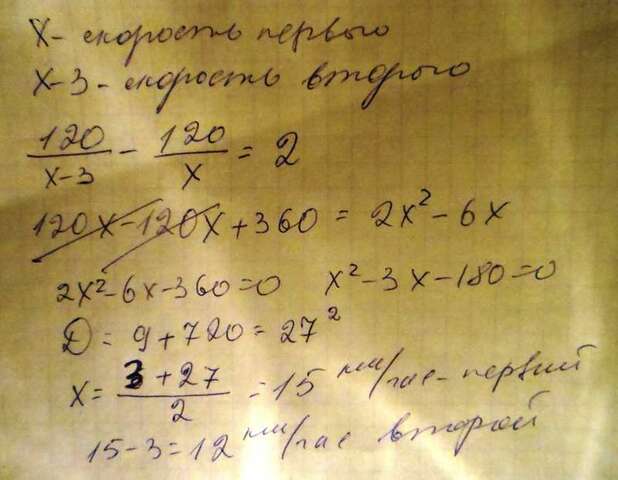 X - скорость первого
X-3 - скорость второго
120/(x-3) - 120/x = 2
120x - 120x + 360 = 2x² - 6x
2x² - 6x - 360 = 0 x² - 3x - 180 = 0
D = 9 + 720 = 27²
x = (3 + 27)/2 = 15 км/час - первый
15 - 3 = 12 км/час второй